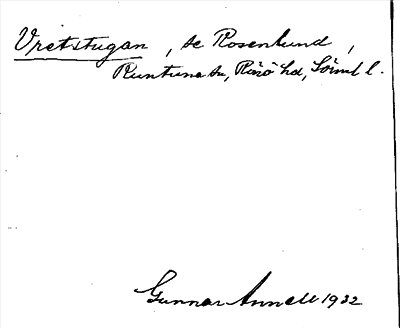 Vretstugan, se Rosenlund,
Runtuna sn, Rönö hd, Sörml l.
Gunnar Annell 1932